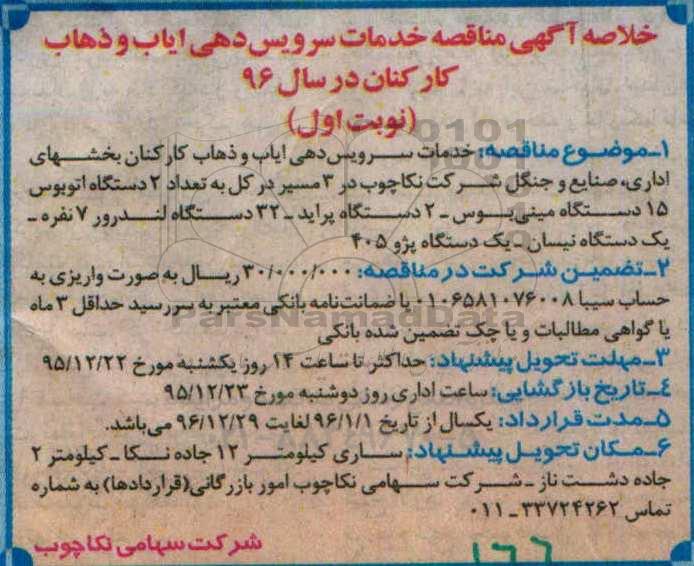 خلاصه آگهی مناقصه خدمات سرویس‌دهی ایاب و ذهاب
کارکنان در سال ۹۶
(نوبت اول)
۱ـ موضوع مناقصه: خدمات سرویس‌دهی ایاب و ذهاب کارکنان بخشهای
اداری، صنایع و جنگل شرکت نکاچوب در ۳ مسیر در کل به تعداد ۲ دستگاه اتوبوس
۱۵ دستگاه مینی‌بوس ـ ۲ دستگاه پراید ـ ۳۲ دستگاه لندرور ۷ نفره ـ
یک دستگاه نیسان ـ یک دستگاه پژو ۴۰۵
۲ـ تضمین شرکت در مناقصه: ۳۰/۰۰۰/۰۰۰ ریال به صورت واریزی به
حساب سیبا ۰۱۰۶۵۸۱۰۷۶۰۰۸ یا ضمانت‌نامه بانکی معتبر به سررسید حداقل ۳ ماه
یا گواهی مطالبات و یا چک تضمین شده بانکی
۳ـ مهلت تحویل پیشنهاد: حداکثر تا ساعت ۱۴ روز یکشنبه مورخ ۹۵/۱۲/۲۲
۴ـ تاریخ بازگشایی: ساعت اداری روز دوشنبه مورخ ۹۵/۱۲/۲۳
۵ـ مدت قرارداد: یکسال از تاریخ ۹۶/۱/۱ لغایت ۹۶/۱۲/۲۹ می‌باشد.
۶ـ مکان تحویل پیشنهاد: ساری کیلومتر ۱۲ جاده نکا ـ کیلومتر ۲
جاده دشت ناز ـ شرکت سهامی نکاچوب امور بازرگانی (قراردادها) به شماره
تماس ۳۳۷۲۴۲۶۲ ـ ۰۱۱
شرکت سهامی نکاچوب
۱۶۶
ParsNamadData